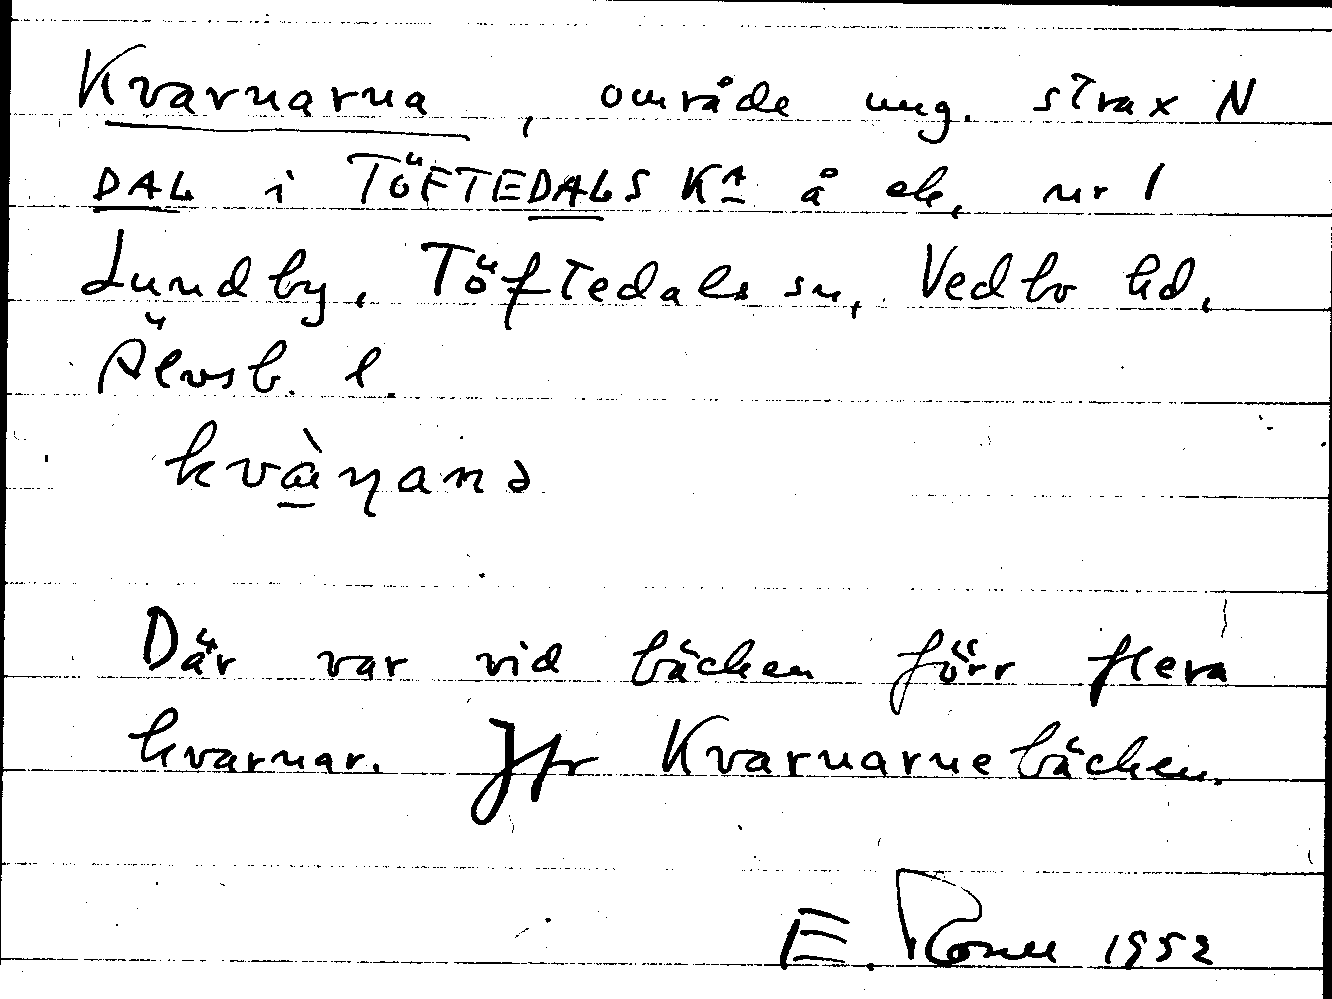 Kvarnarna, område ung. strax N
DAL i TÖFTEDALS KA å ek. nr 1
Lundby, Töftedals sn, Vedbo hd.
Älvsb. l.
kvàɳanə
Där var vid bäcken förr flera
kvarnar. Jfr Kvarnarnebäcken.
E. 1952